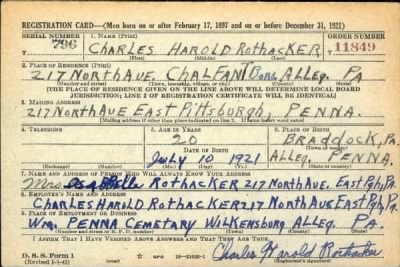 REGISTRATION CARD—(Men born on or after February 17, 1897 and on or before December 31, 1921)
SERIAL NUMBER 1. NAME (Print) ORDER NUMBER
796 CHARLES HAROLD ROTHACKER 11849
(First) (Middle) (Last)
2. PLACE OF RESIDENCE (Print)
217 NORTH AVE. CHALFANT BORO ALLEG. PA
(Number and street) (Town, township, village, or city) (County) (State)
[THE PLACE OF RESIDENCE GIVEN ON THE LINE ABOVE WILL DETERMINE LOCAL BOARD
JURISDICTION; LINE 2 OF REGISTRATION CERTIFICATE WILL BE IDENTICAL]
3. MAILING ADDRESS
217 NORTH AVE EAST PITTSBURGH, PENNA.
[Mailing address if other than place indicated on line 2. If same insert word same]
4. TELEPHONE 5. AGE IN YEARS 6. PLACE OF BIRTH
20 BRADDOCK, PA.
DATE OF BIRTH (Town or county)
JULY 10 1921 ALLEG. PENNA.
(Exchange) (Number) (Mo.) (Day) (Yr.) (State or country)
7. NAME AND ADDRESS OF PERSON WHO WILL ALWAYS KNOW YOUR ADDRESS
MRS ROTHACKER 217 NORTH AVE. EAST PGH, PA
8. EMPLOYER'S NAME AND ADDRESS
CHARLES HAROLD ROTHACKER 217 NORTH AVE EAST PGH, PA.
9. PLACE OF EMPLOYMENT OR BUSINESS
WM. PENNA CEMETARY WILKENSBURG ALLEG. PA.
(Number and street or R. F. D. number) (Town) (County) (State)
I AFFIRM THAT I HAVE VERIFIED ABOVE ANSWERS AND THAT THEY ARE TRUE.
D. S. S. Form 1 GPO 16—21630-1 Charles Harold Rothacker
(Revised 1-1-42) (over) (Registrant's signature)